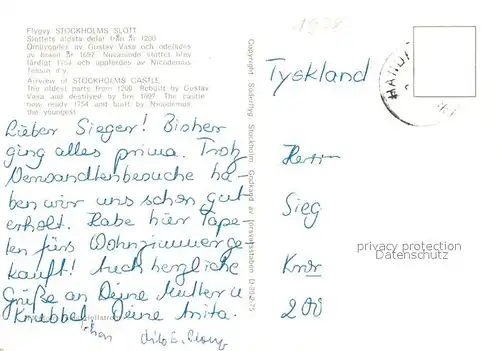 Flygvy STOCKHOLMS SLOTT
Slottets äldsta delar från år 1200
Ombyggdes av Gustav Vasa och ödelades
av eld år 1697. Nuvarande slottet blev
färdigt 1754 och uppfördes av Nicodemus
Tessin d.y.
Airview of STOCKHOLMS CASTLE.
The oldest parts from 1200. Rebuilt by Gustav
Vasa and destroyed by fire 1697. The castle
now ready 1754 and built by Nicodemus
the youngest
Lieber Sieger! Bisher
ging alles prima. Trotz
Verwandtenbesuche ha-
ben wir uns schon gut
erholt. Habe hier Tape-
ten fürs Wohnzimmer ge-
kauft! Auch herzliche
Grüße an Deine Mutter u.
Deine Anita.
Copyright Söderflygs Stockholm
1978
Tyskland
HANDA
Herrn
Sieg
200
privacy protection
Datenschutz